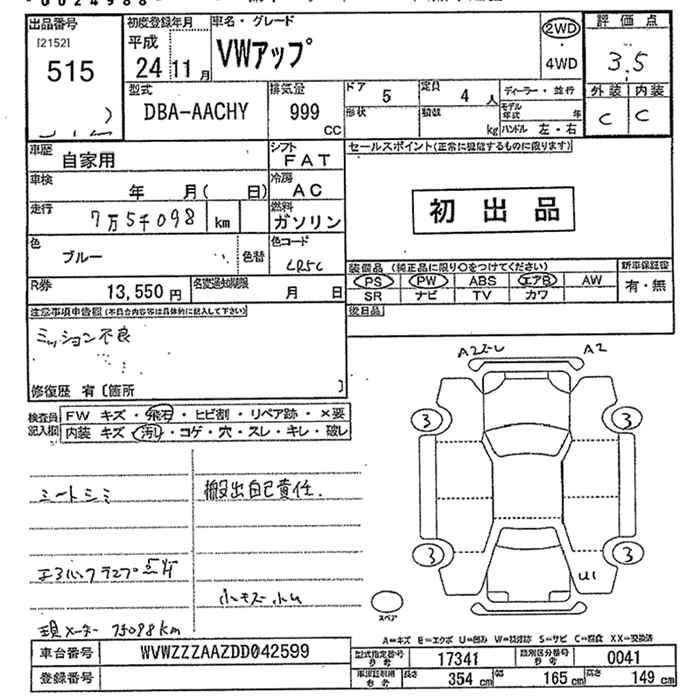 出品番号
[2152]
515
初度登録年月
平成
24 11 月
車名・グレード
VWアップ
2WD
・
4WD
評価点
3.5
外装 内装
C C
型式
DBA-AACHY
排気量
999
CC
ドア
5
定員
4 人
形状
積数
kg
ディーラー・並行
モデル年式 年
ハンドル 左・右
車歴
自家用
シフト
FAT
車検
年 月( 日)
冷房
AC
走行
7万5千098 km
燃料
ガソリン
色
ブルー
色替
色コード
LR5C
R券
13,550 円
名変通知期限
月 日
セールスポイント(正常に機能するものに限ります)
初出品
装備品 (純正品に限り○をつけてください)
PS PW ABS エアB AW
SR ナビ TV カワ
新車保証書
有・無
後日品
注意事項申告欄(不具合内容等は具体的に記入して下さい)
ミッション不良
修復歴 有〔箇所 〕
検査員記入欄
FW キズ・飛石・ヒビ割・リペア跡・×要
内装 キズ・汚れ・コゲ・穴・スレ・キレ・破レ
シートシミ
搬出自己責任.
エアバックランプ点灯
小キズ 小凹
現メーター 75098km
A2 A2
3 3
3 3
U1
スペア
A=キズ E=エクボ U=凹み W=波跡 S=サビ C=腐食 XX=交換済
車台番号
WVWZZZAAZDD042599
登録番号
型式指定番号
参考
17341
類別区分番号
参考
0041
車検証記載
参考
長さ
354 cm
幅
165 cm
高さ
149 cm